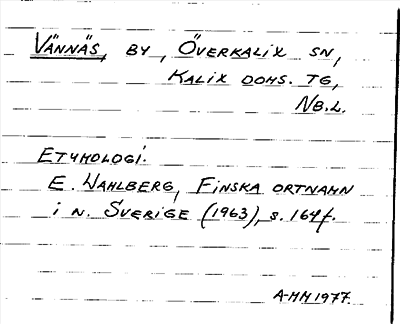 VÄNNÄS, BY, ÖVERKALIX SN,
KALIX DOMS. TG,
NB.L.
ETYMOLOGI.
E. WAHLBERG, FINSKA ORTNAMN
i N. SVERIGE (1963), S. 164f.
A-MM 1977